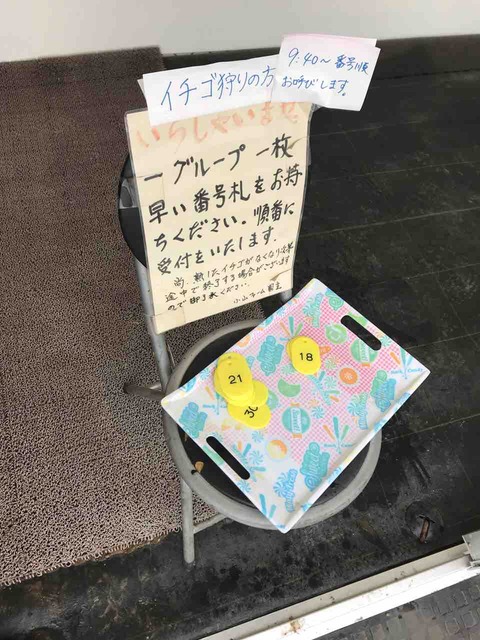 イチゴ狩りの方
9:40～番号順
お呼びします。
いらっしゃいませ
一グループ一枚
早い番号札をお持
ちください。順番に
受付をいたします.
尚、熟したイチゴがなくなり次第
途中で終了する場合がございます
ので御了承ください.
小山ファーム 園主
18
21